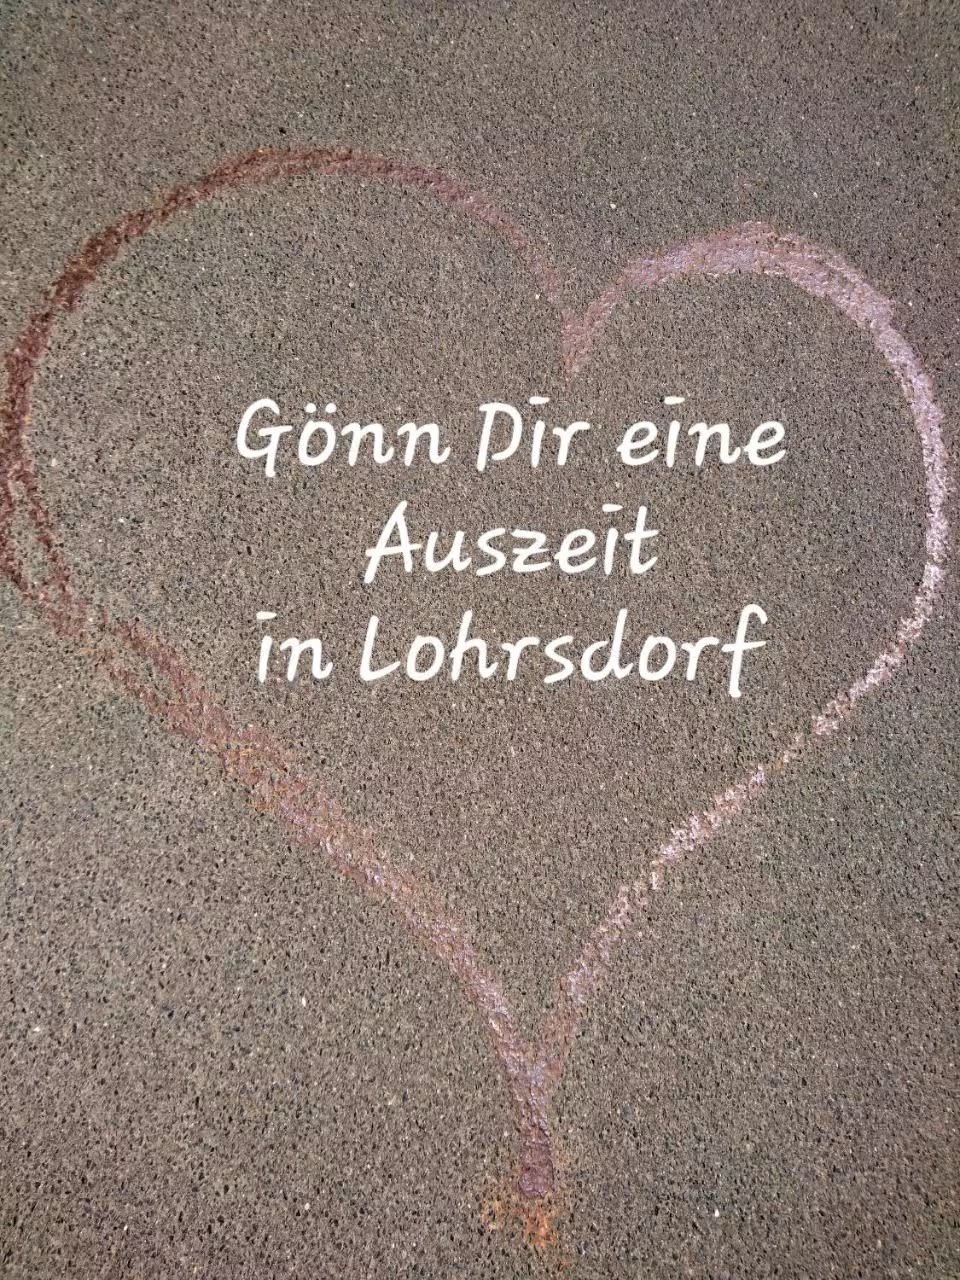 Gönn Dir eine
Auszeit
in Lohrsdorf